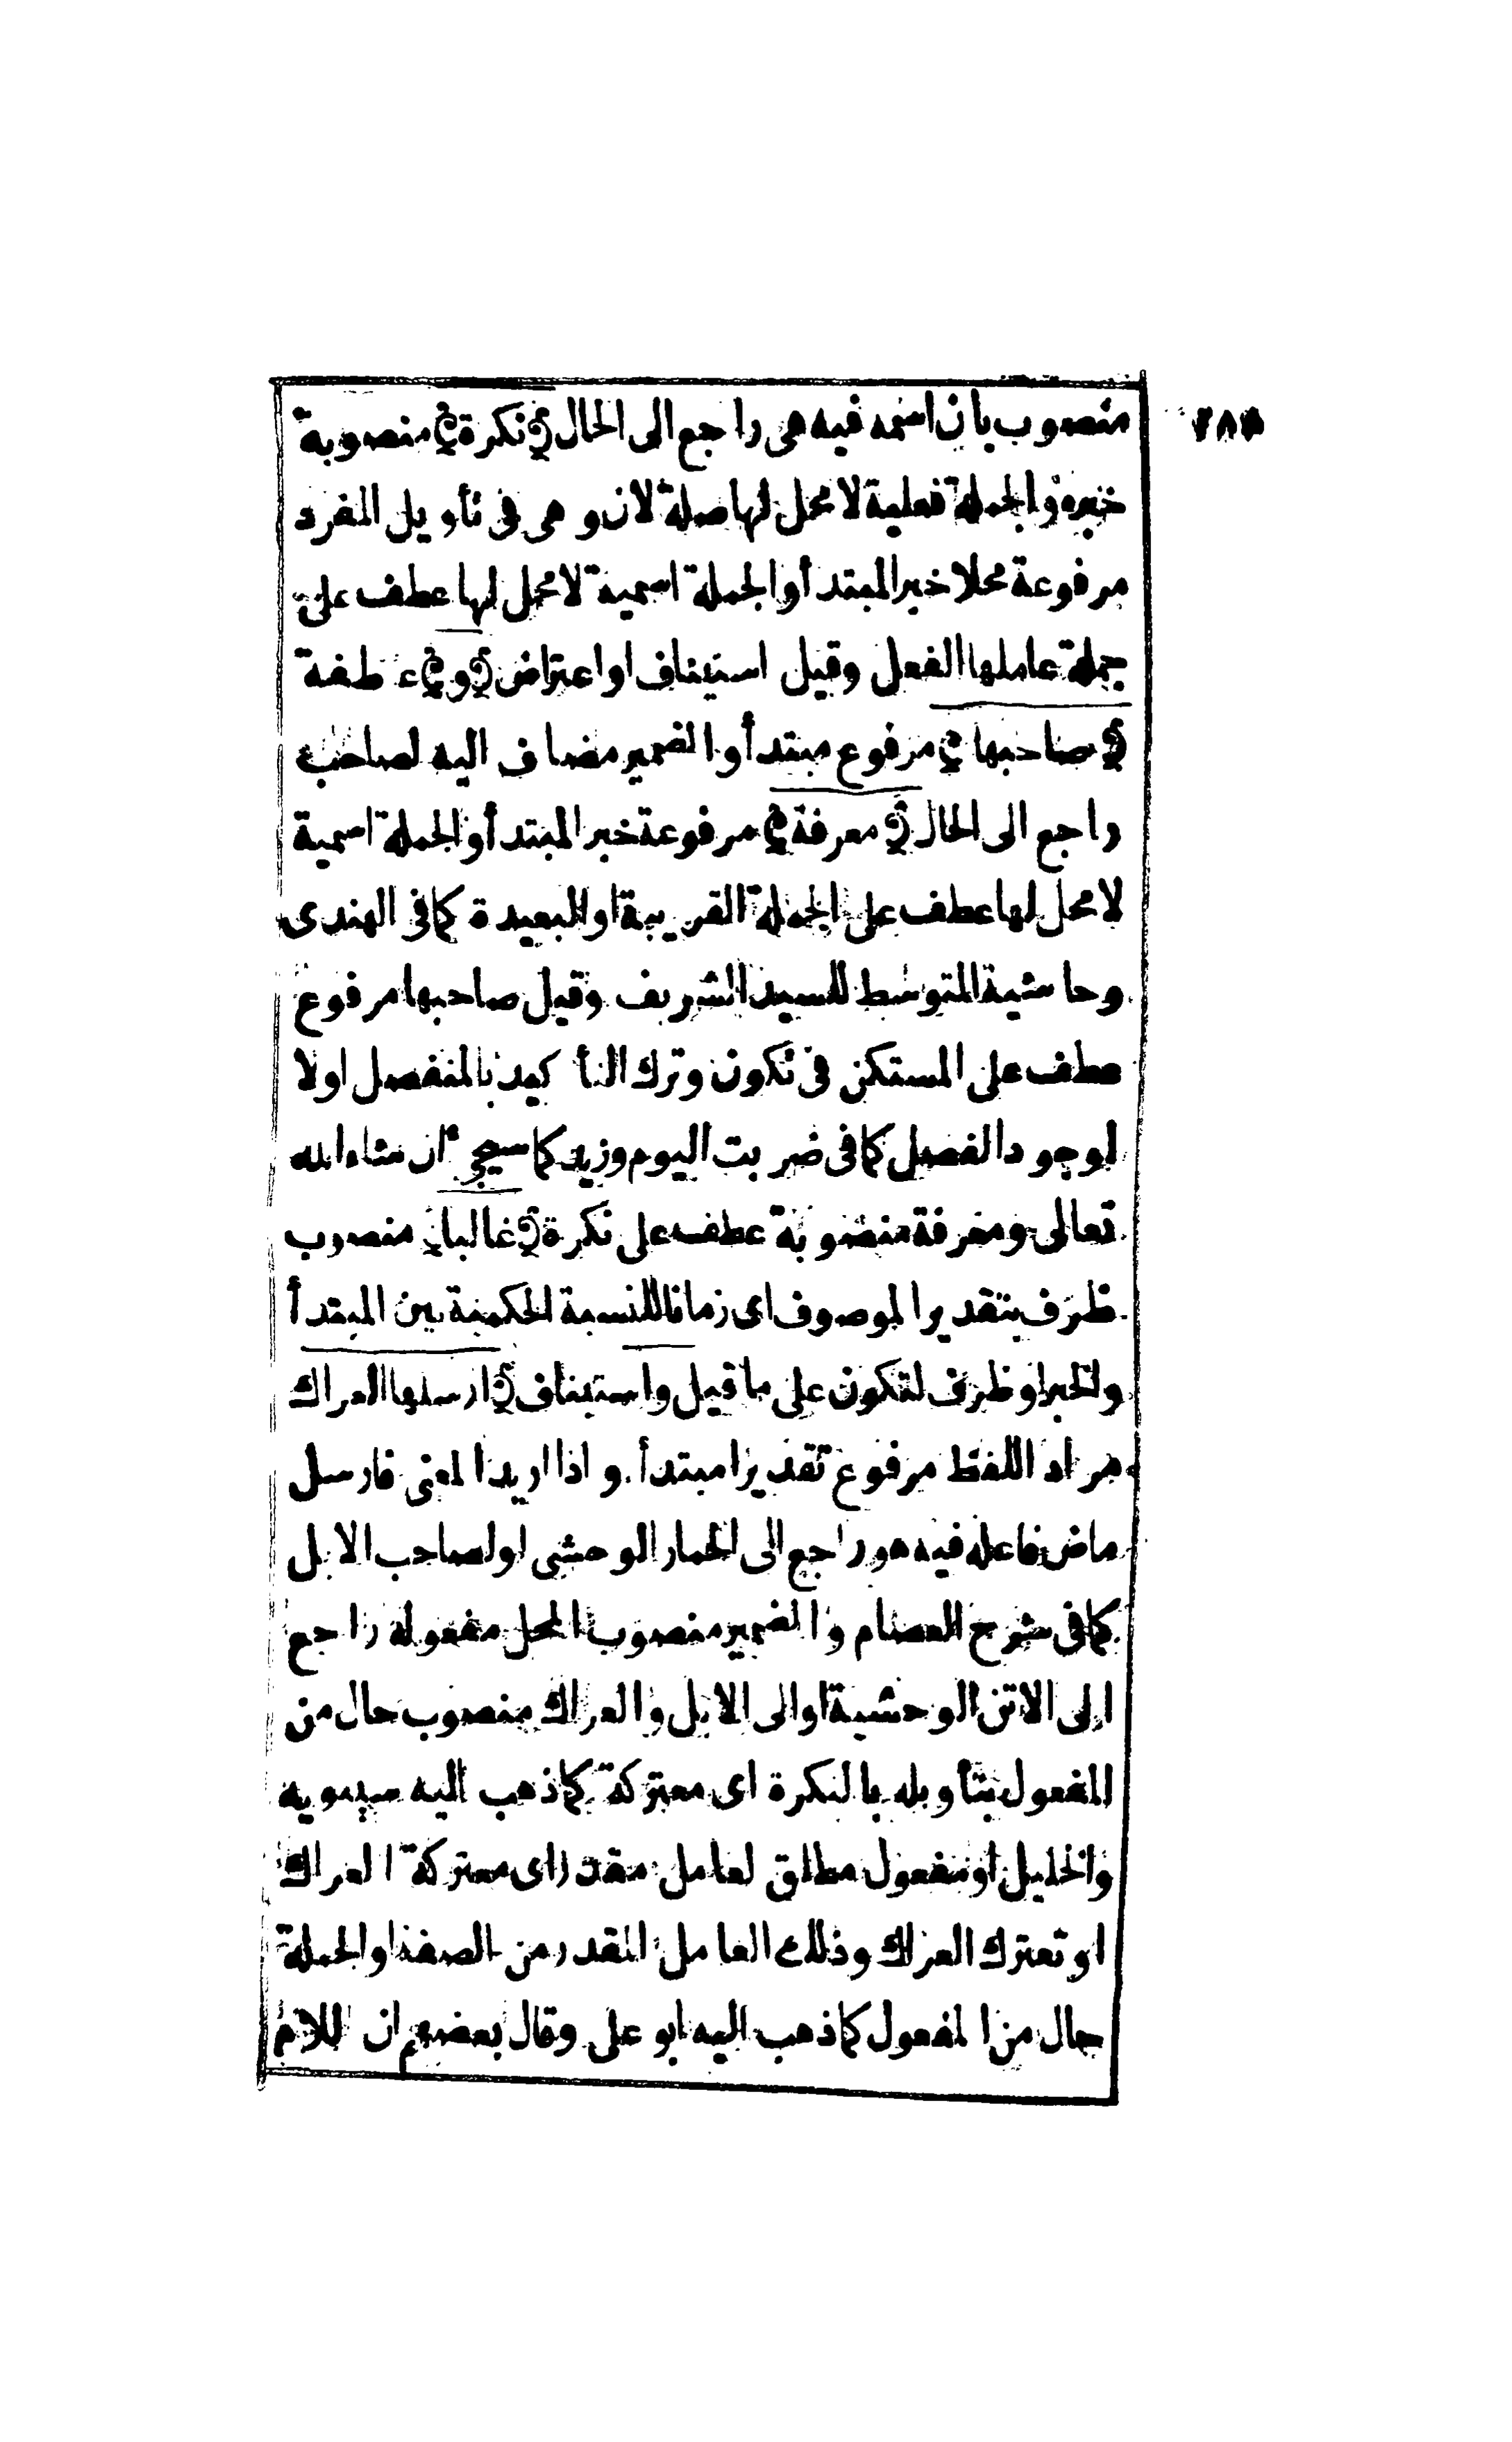 منصوب بان اسمه فيه هى راجع الى الحال ﴿ نكرة ﴾ منصوبة
خبره والجملة فعلية لا محل لها صلة لان و هى فى تأويل المفرد
مرفوعة محلا خبر المبتدأ والجملة اسمية لا محل لها عطف على
جملة عاملها الفعل وقيل استيناف او اعتراض ﴿ و ﴾ عاطفة
﴿ صاحبها ﴾ مرفوع مبتدأ والضمير مضاف اليه لصاحب
راجع الى الحال ﴿ معرفة ﴾ مرفوعة خبر المبتدأ والجملة اسمية
لا محل لها عطف على الجملة القريبة او البعيدة كما فى الهندى
وحاشية المتوسط للسيد الشريف وقيل صاحبها مرفوع
عطف على المستكن فى تكون وترك التأكيد بالمنفصل اولا
لوجود الفصل كما فى ضربت اليوم وزيد كما سيجئ ان شاء الله
تعالى ومعرفة منصوبة عطف على نكرة ﴿ غالبا ﴾ منصوب
ظرف بتقدير الموصوف اى زمانا للنسبة الحكمية بين المبتدأ
والخبر او ظرف لتكون على ما قيل واستيناف ﴿ ارسلها العراك
مراد اللفظ مرفوع تقديرا مبتدأ. و اذا اريد المعنى فارسل
ماض فاعله فيه هو راجع الى الحمار الوحشى او لصاحب الابل
كما فى شرح العصام والضمير منصوب المحل مفعوله راجع
الى الاتن الوحشية او الى الابل والعراك منصوب حال من
المفعول بتأويله بالنكرة اى معتركة كما ذهب اليه سيبويه
والخليل او مفعول مطلق لعامل مقدر اى معتركة العراك
او تعترك العراك وذلك العامل المقدر من الصفة او الجملة
حال من المفعول كما ذهب اليه ابو على وقال بعضهم ان اللام